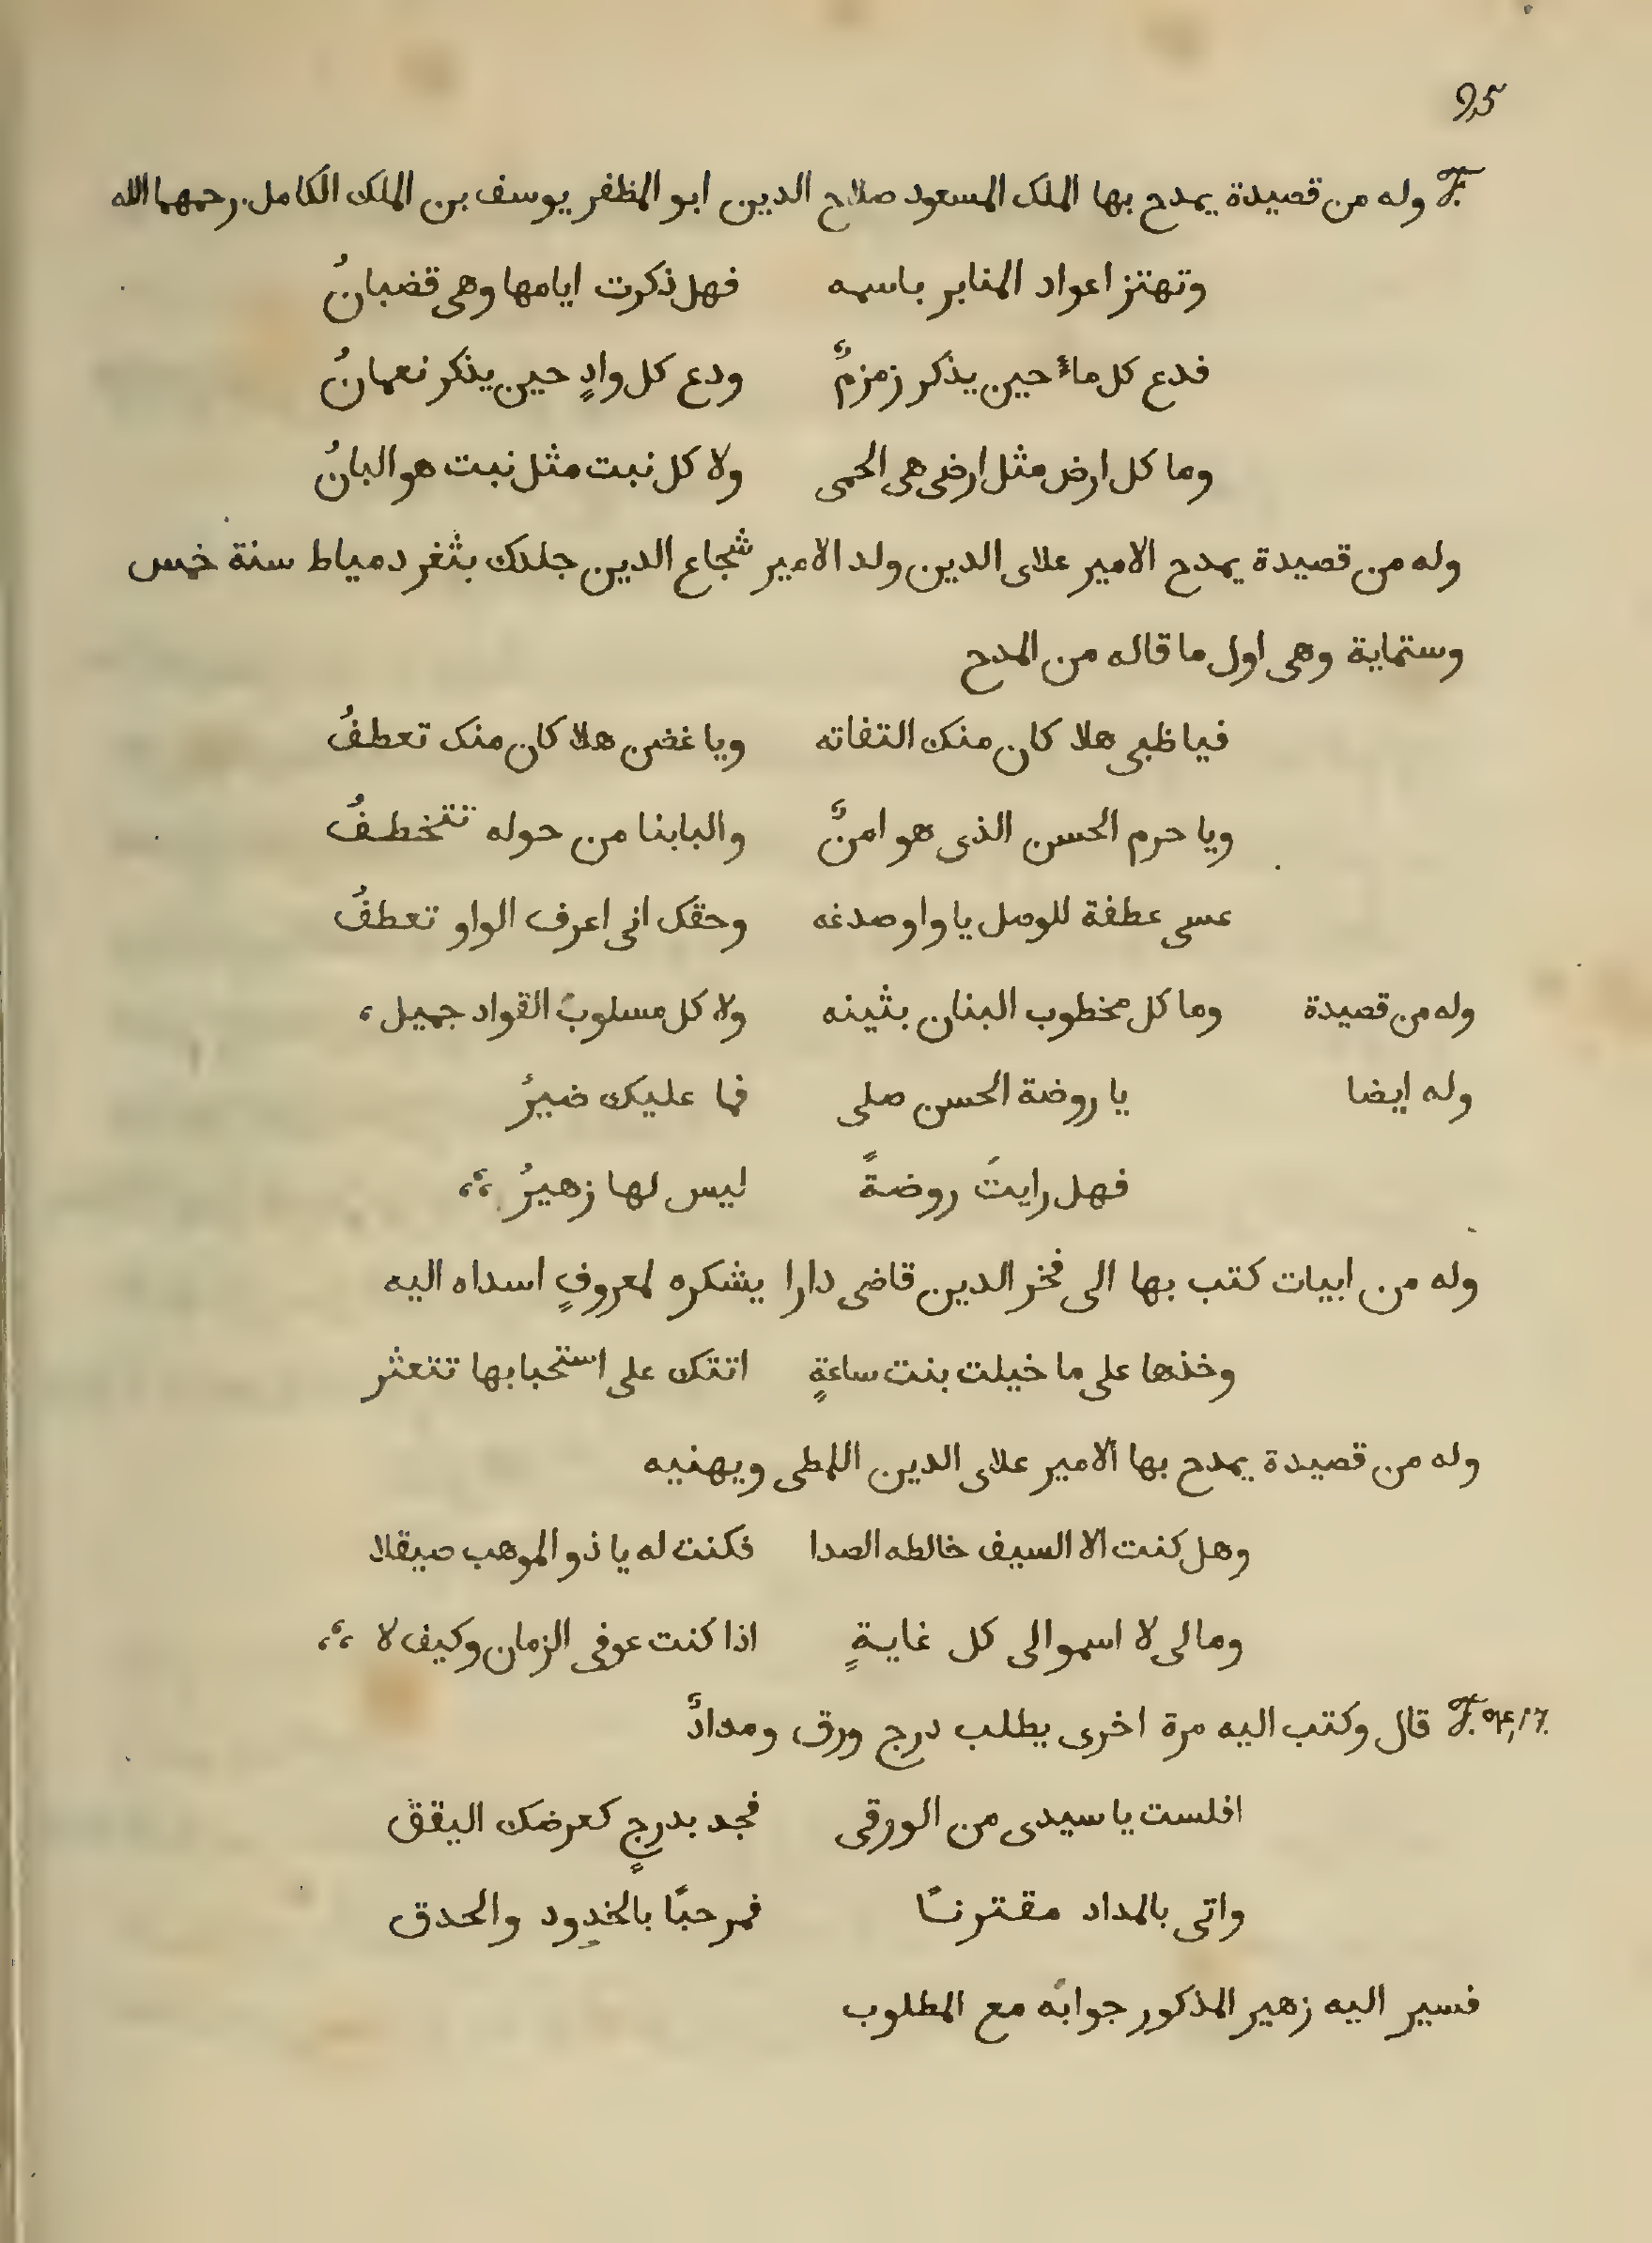 95
F. وله من قصيدة يمدح بها الملك المسعود صلاح الدين ابو المظفر يوسف بن الملك الكامل رحمهما الله
وتهتز اعواد المنابر باسمه فهل ذكرت ايامها وهى قضبانُ
فدع كل ماءٍ حين يذكر زمزمٌ ودع كل وادٍ حين يذكر نعمانُ
وما كل ارض مثل ارض هى الحمى ولا كل نبت مثل نبت هو البانُ
وله من قصيدة يمدح الامير علاى الدين ولد الامير شجاع الدين جلدك بثغر دمياط سنة خمس
وستماية وهى اول ما قاله من المدح
فيا ظبى هلا كان منك التفاته ويا غضن هلا كان منك تعطفُ
ويا حرم الحسن الذى هو امنٌ والبابنا من حوله تتخطفُ
عسى عطفة للوصل يا واو صدغه وحقك انى اعرف الواو تعطفُ
وله من قصيدة وما كل مخطوب البنان بثينه ولا كل مسلوب القواد جميل،
وله ايضا يا روضة الحسن صلى فما عليك ضيرُ
فهل رايتَ روضةً ليس لها زهيرُ
وله من ابيات كتب بها الى فخر الدين قاضى دارا يشكره لمعروفٍ اسداه اليه
وخذها على ما خيلت بنت ساعةٍ اتتك على استحبابها تتعثر
وله من قصيدة يمدح بها الامير علاى الدين اللمطى ويهنيه
وهل كنت الا السيف خالطه الصدا فكنت له يا ذو الموهب صيقلا
ومالى لا اسمو الى كل غايةٍ اذا كنت عوفى الزمان وكيف لا
F. قال وكتب اليه مرة اخرى يطلب درج ورق ومدادٌ
افلست يا سيدى من الورقى فجد بدرجٍ كعرضك اليقق
واتى بالمداد مقترنًا فمرحبًا بالخدود والحدق
فسير اليه زهير المذكور جوابه مع المطلوب